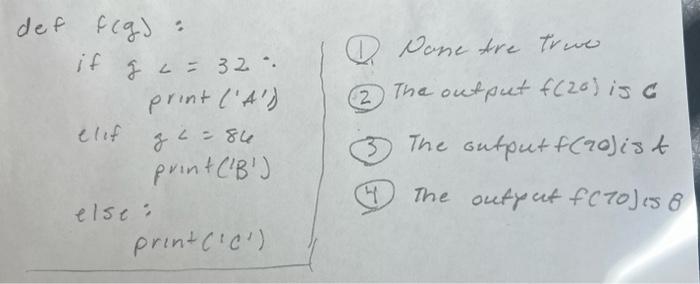 def f(g) :
if g <= 32 :
print ('A')
elif g <= 86
print('B')
else :
print('C')
① None Are True
② The output f(20) is C
③ The output f(90) is A
④ The output f(70) is B